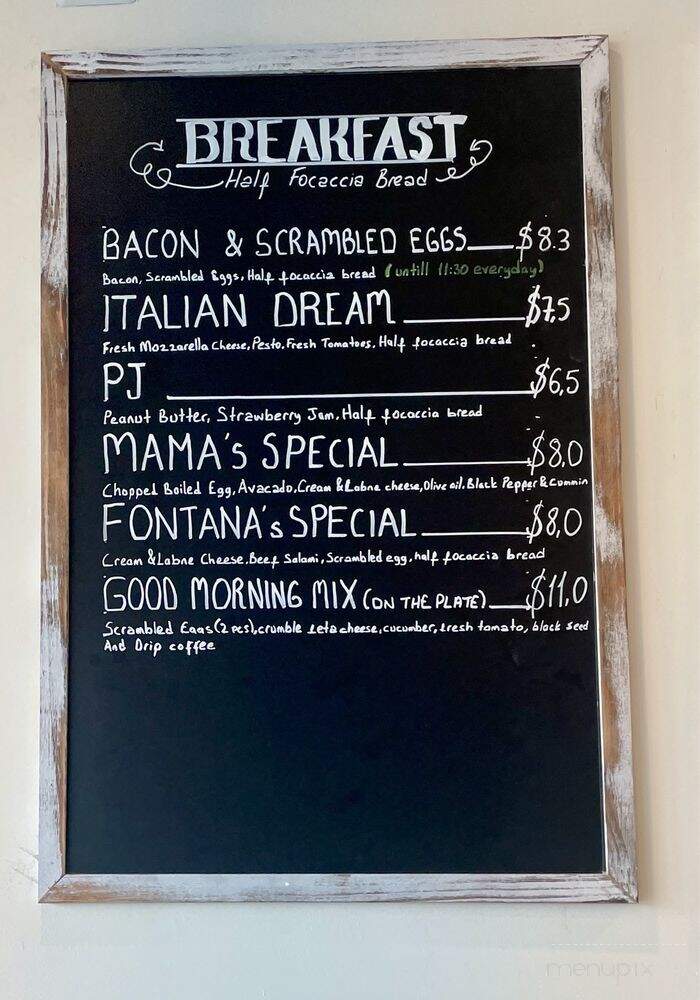 BREAKFAST
Half Focaccia Bread
BACON & SCRAMBLED EGGS $8.3
Bacon, Scrambled Eggs, Half focaccia bread (untill 11:30 everyday)
ITALIAN DREAM $7,5
Fresh Mozzarella Cheese, Pesto, Fresh Tomatoes, Half focaccia bread
PJ $6,5
Peanut Butter, Strawberry Jam, Half focaccia bread
MAMA's SPECIAL $8,0
Chopped Boiled Egg, Avacado, Cream & Labne cheese, Olive oil, Black Pepper & Cummin
FONTANA's SPECIAL $8,0
Cream & Labne Cheese, Beef Salami, Scrambled egg, half focaccia bread
GOOD MORNING MIX (ON THE PLATE) $11,0
Scrambled Eggs (2 pcs), crumble feta cheese, cucumber, fresh tomato, black seed
And Drip coffee
menupix